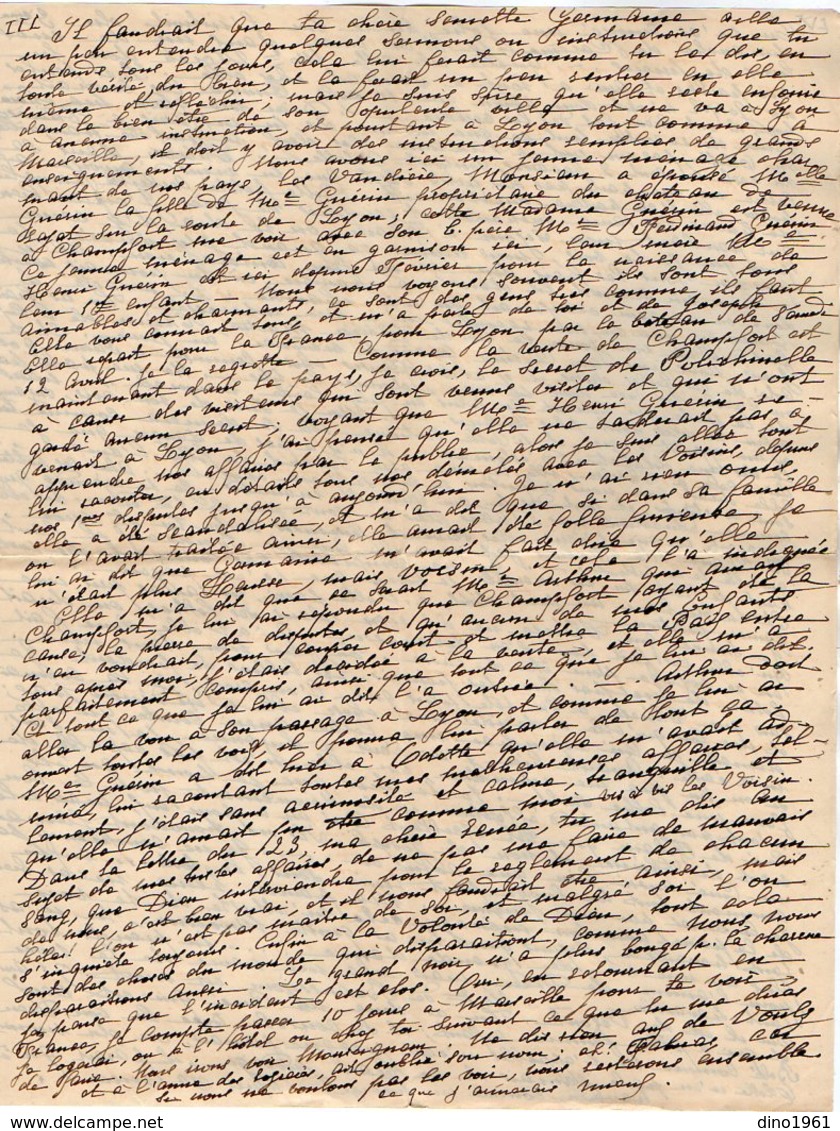 III Il faudrait que ta chère Germaine aille
un peu entendre quelques sermons ou instructions que tu
entends tous les jours, cela lui ferait comme tu le dis, en
toute vérité du bien, et la ferait un peu rentrer en elle
même et réfléchir; mais je suis sûre qu'elle reste enfouie
dans le bien être de son opulente villa et ne va à Lyon
à aucune instruction, et pourtant à Lyon tout comme à
Marseille, il doit y avoir des instructions remplies de grands
enseignements. Nous avons ici un jeune ménage char
mant de nos pays, les Vandière, Monsieur a épousé Melle
Guérin la fille de Me Guérin propriétaire du château de
sur la route de Lyon; cette Madame Guérin est venue
à Champfort me voir avec son b. père Mr Ferdinand Guérin
Ce jeune ménage est en garnison ici, leur mère Me
Henri Guérin est ici depuis Février pour la naissance de
leur 1er enfant — Nous nous voyons souvent ils sont tous
aimables et charmants, ce sont des gens très comme il faut
Elle vous connait tous, et m'a parlé de toi et de Joseph
Elle repart pour la France, pour Lyon par le bateau de Samedi
12 Avril. Je la regrette — Comme la vente de Champfort est
maintenant dans le pays, je crois, le secret de Polichinelle
à cause des visiteurs qui sont venus visiter et qui n'ont
gardé aucun secret; voyant que Me Henri Guérin re-
venait à Lyon, j'ai pensé qu'elle ne tarderait pas à
apprendre nos affaires par le public, alors je suis allée tout
lui raconter, en détails tous nos démêlés avec les Voisins, depuis
nos 1ères disputes jusqu'à aujourd'hui. Je n'ai rien omis,
elle a été scandalisée, et m'a dit que si dans sa famille
on l'avait traitée ainsi, elle aurait été folle furieuse. Je
lui ai dit que Germaine m'avait fait dire qu'elle
n'était plus House, mais Voisin, et cela l'a indignée
Elle m'a dit que ce serait Me Arthur qui aurait
Champfort, je lui ai répondu que Champfort ayant été la
cause, la pierre de disputes, et qu'aucun de mes Enfants
n'en voudrait, pour couper court et mettre la Paix entre
tous après moi, j'étais décidée à la vente, et elle m'a
parfaitement compris, ainsi que tout ce que je lui ai dit.
Et tout ce que je lui ai dit l'a outrée. — Arthur doit
aller la voir à son passage à Lyon, et comme je lui ai
ouvert toutes les voies, il pourra lui parler de tout ça.
Me Guérin a dit hier à Odette qu'elle m'avait ad-
mirée, lui racontant toutes mes malheureuses affaires, tel-
lement, j'étais sans animosité et calme, tranquille et
qu'elle n'aurait pu être comme moi vis à vis les Voisin.
Dans ta lettre du 23, ma chère Renée, tu me dis au
sujet de mes tristes affaires, de ne pas me faire de mauvais
sang, que Dieu interviendra pour le règlement de chacun
de nous, c'est bien vrai, et il nous faudrait être ainsi, mais
hélas! l'on n'est pas maître de soi, et malgré soi l'on
s'inquiète toujours. Enfin à la Volonté de Dieu, tout cela
sont des choses du monde qui disparaitront, comme nous nous
disparaitrons aussi. Le grand noir, n'a plus bougé p. la chasse
je pense que l'incident est clos. Oui, en retournant en
France, je compte passer 10 jours à Marseille pour te voir
je logerai, ou à l'hôtel ou chez toi suivant ce que tu me diras
de faire. Nous irons voir Monseigneur. Ne dis rien aux de Voulx
et à l'amie des logiciès, ai oublié son nom; et Palma, car
si nous ne voulons pas les voir, nous resterons ensemble
ce que j'aimerais mieux.
dino1961